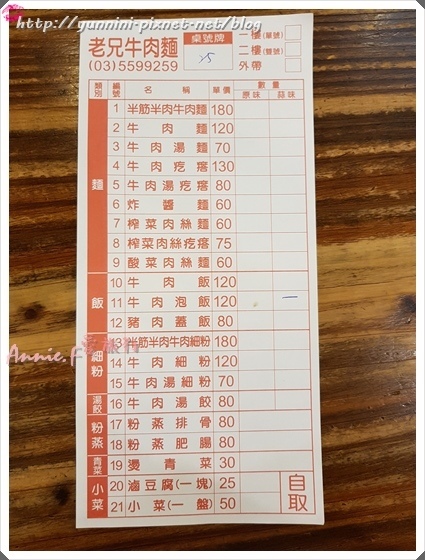 http://yunnini-pixnet-net/blog
老兄牛肉麵 桌號牌 一樓(單號)
(03)5599259 二樓(雙號)
外帶
類別 編號 名稱 單價 數量
原味 蒜味
麵
1 半筋半肉牛肉麵 180
2 牛肉麵 120
3 牛肉湯麵 70
4 牛肉疙瘩 130
5 牛肉湯疙瘩 80
6 炸醬麵 60
7 榨菜肉絲麵 60
8 榨菜肉絲疙瘩 75
9 酸菜肉絲麵 60
飯
10 牛肉飯 120
11 牛肉泡飯 120 一
12 豬肉蓋飯 80
細粉
13 半筋半肉牛肉細粉 180
14 牛肉細粉 120
15 牛肉湯細粉 70
湯餃 16 牛肉湯餃 80
粉蒸
17 粉蒸排骨 80
18 粉蒸肥腸 80
青菜 19 燙青菜 30
小菜
20 滷豆腐(一塊) 25
21 小菜(一盤) 50
自取
Annie.F